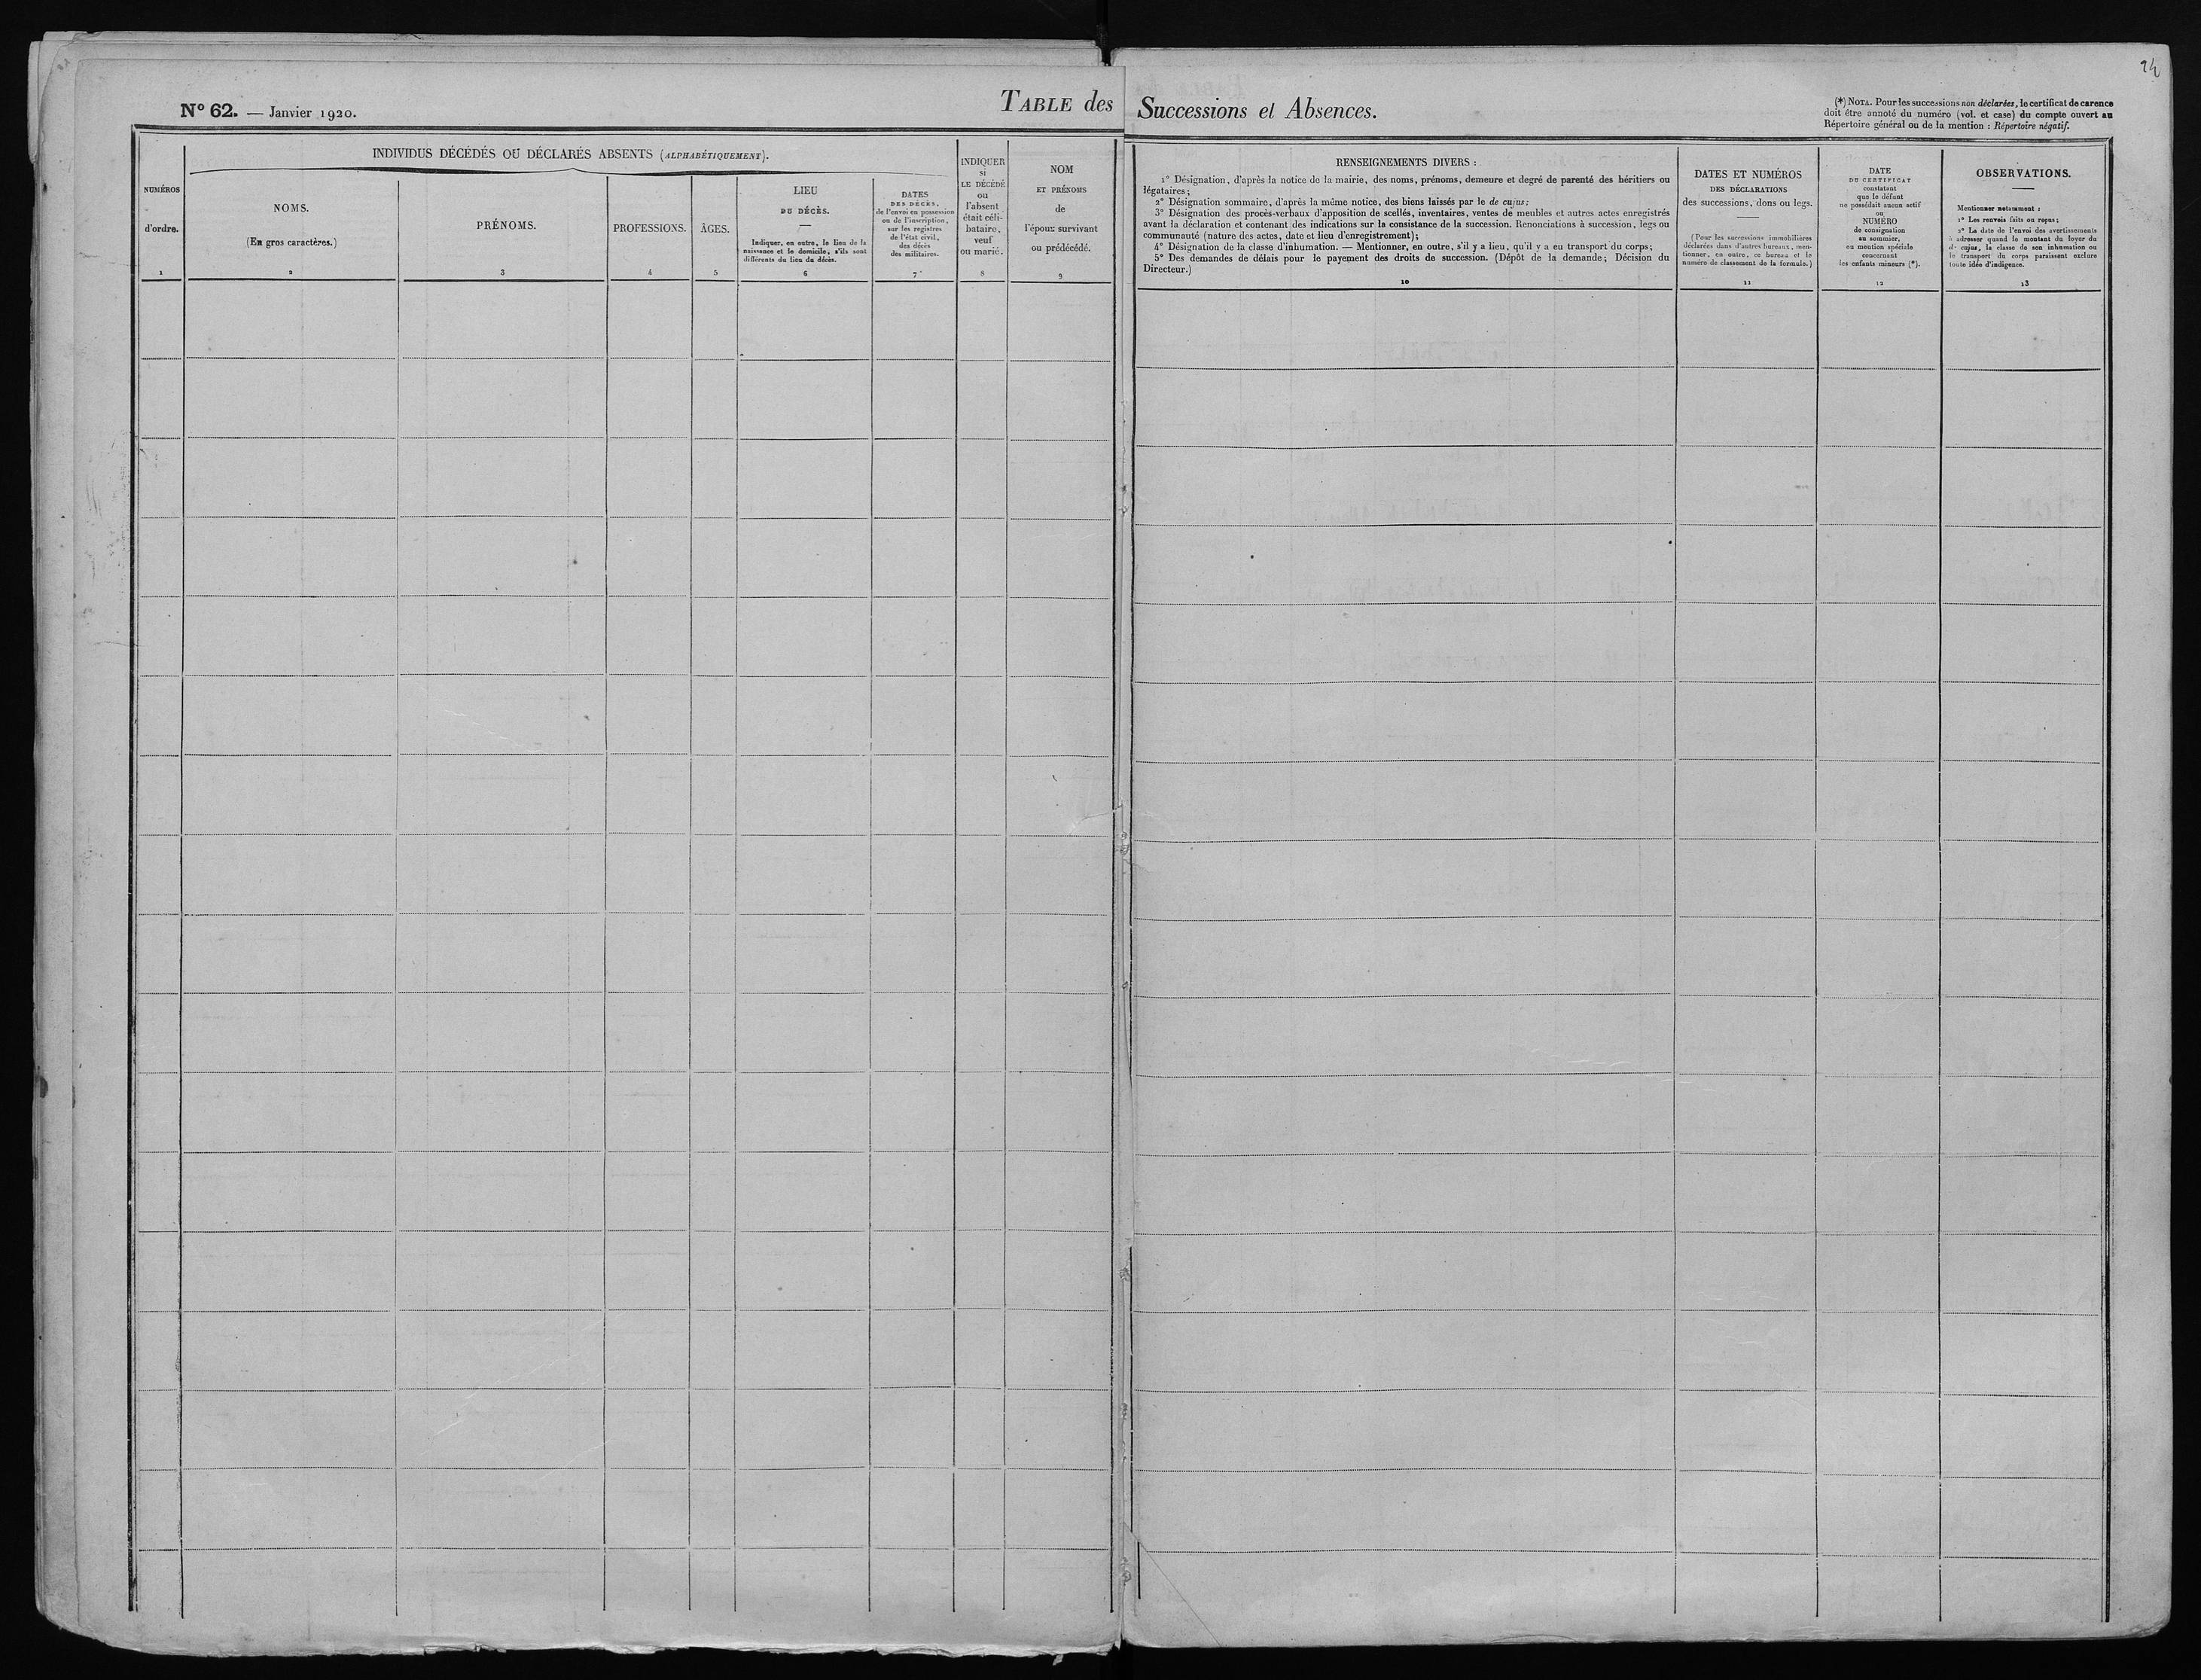 24
N° 62. — Janvier 1920.
TABLE des Successions et Absences.
(*) NOTA. Pour les successions non déclarées, le certificat de carence
doit être annoté du numéro (vol. et case) du compte ouvert au
Répertoire général ou de la mention : Répertoire négatif.
INDIVIDUS DÉCÉDÉS OU DÉCLARÉS ABSENTS (ALPHABÉTIQUEMENT).
NUMÉROS
d'ordre.
1
NOMS.
(En gros caractères.)
2
PRÉNOMS.
3
PROFESSIONS.
4
ÂGES.
5
LIEU
DU DÉCÈS.
Indiquer, en outre, le lieu de la
naissance et le domicile, s'ils sont
différents du lieu du décès.
6
DATES
DES DÉCÈS,
de l'envoi en possession
ou de l'inscription,
sur les registres
de l'état civil,
des décès
des militaires.
7
INDIQUER
si
LE DÉCÉDÉ
ou
l'absent
était céli-
bataire,
veuf
ou marié.
8
NOM
ET PRÉNOMS
de
l'époux survivant
ou prédécédé.
9
RENSEIGNEMENTS DIVERS :
1° Désignation, d'après la notice de la mairie, des noms, prénoms, demeure et degré de parenté des héritiers ou
légataires;
2° Désignation sommaire, d'après la même notice, des biens laissés par le de cujus;
3° Désignation des procès-verbaux d'apposition de scellés, inventaires, ventes de meubles et autres actes enregistrés
avant la déclaration et contenant des indications sur la consistance de la succession. Renonciations à succession, legs ou
communauté (nature des actes, date et lieu d'enregistrement);
4° Désignation de la classe d'inhumation. — Mentionner, en outre, s'il y a lieu, qu'il y a eu transport du corps;
5° Des demandes de délais pour le payement des droits de succession. (Dépôt de la demande; Décision du
Directeur.)
10
DATES ET NUMÉROS
DES DÉCLARATIONS
des successions, dons ou legs.
(Pour les successions immobilières
déclarées dans d'autres bureaux, men-
tionner, en outre, ce bureau et le
numéro de classement de la formule.)
11
DATE
DU CERTIFICAT
constatant
que le défunt
ne possédait aucun actif
ou
NUMÉRO
de consignation
au sommier,
ou mention spéciale
concernant
les enfants mineurs (*).
12
OBSERVATIONS.
Mentionner notamment :
1° Les renvois faits ou reçus;
2° La date de l'envoi des avertissements
à adresser quand le montant du loyer du
de cujus, la classe de son inhumation ou
le transport du corps paraissent exclure
toute idée d'indigence.
13